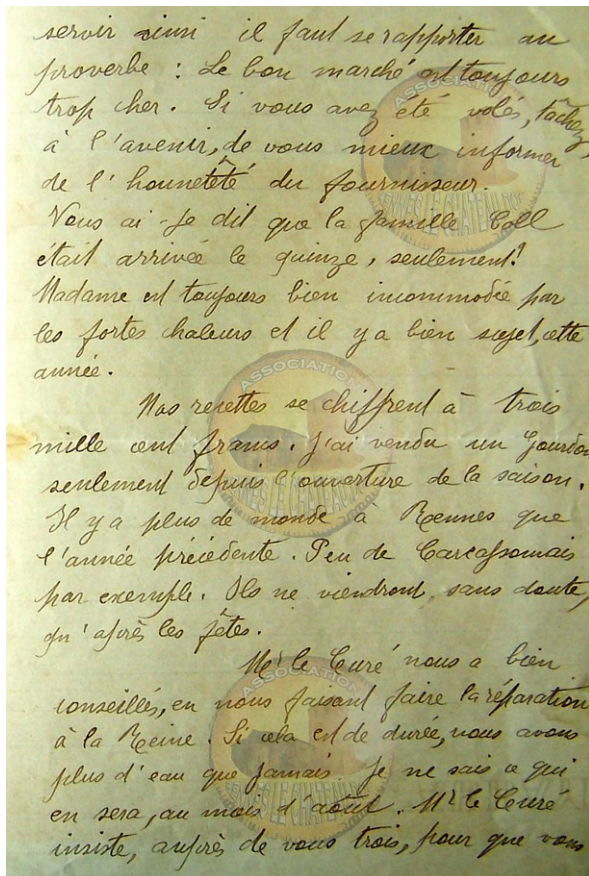 servir ainsi il faut se rapporter au
proverbe : Le bon marché est toujours
trop cher. Si vous avez été volés, tâchez,
à l'avenir, de vous mieux informer
de l'honnêteté du fournisseur.
Vous ai-je dit que la famille Coll
était arrivée le quinze, seulement!
Madame est toujours bien incommodée par
les fortes chaleurs et il y a bien sujet, cette
année.
Nos recettes se chiffrent à trois
mille cent francs. J'ai vendu un Gourdon
seulement depuis l'ouverture de la saison.
Il y a plus de monde à Rennes que
l'année précédente. Peu de Carcassonnais
par exemple. Ils ne viendront, sans doute,
qu'après les fêtes.
Mr le Curé nous a bien
conseillés, en nous faisant faire la réparation
à la Reine. Si cela est de durée, nous avons
plus d'eau que jamais. Je ne sais ce qui
en sera, au mois d'août. Mr le Curé
insiste, auprès de vous trois, pour que vous
ASSOCIATION
RENNES LE CHATEAU.DOC
ASSOCIATION
RENNES LE CHATEAU.DOC
ASSOCIATION
RENNES LE CHATEAU.DOC